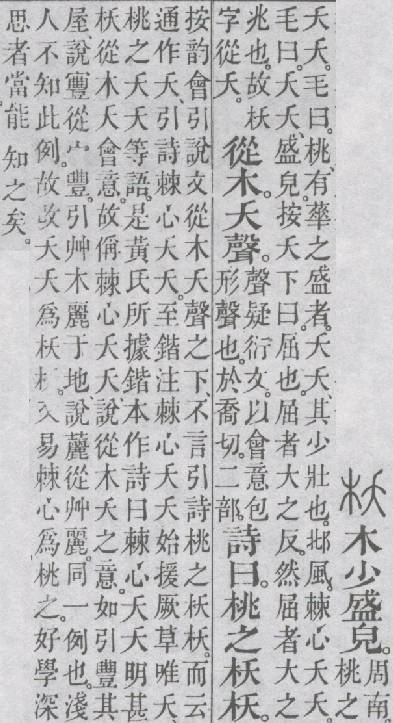 枖木少盛皃。周南。桃之
夭夭。毛曰。桃有華之盛者。夭夭、其少壯也。邶風。棘心夭夭。
毛曰。夭夭、盛皃。按夭下曰。屈也。屈者大之反。然屈者大之
兆也。故枖字從夭。從木夭聲。聲疑衍文。以會意包形聲也。於喬切。二部。詩曰。桃之枖枖。
按韵會引說文從木夭聲之下、不言引詩桃之枖枖。而云
通作夭、引詩棘心夭夭。至鍇注棘心夭夭始援厥草唯夭、
桃之夭夭等語。是黃氏所據鍇本作詩曰棘心夭夭明甚。
枖從木夭會意。故偁棘心夭夭、說從木夭之意。如引豐其
屋、說寷從宀豐。引艸木麗于地、說䕻從艸麗。同一例也。淺
人不知此例。故改夭夭爲枖枖。又易棘心爲桃之。好學深
思者當能知之矣。